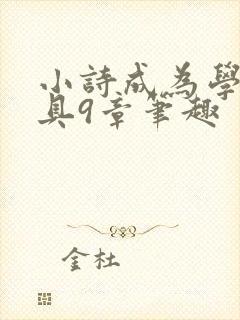 小詩成為學
具9章筆趣
金杜